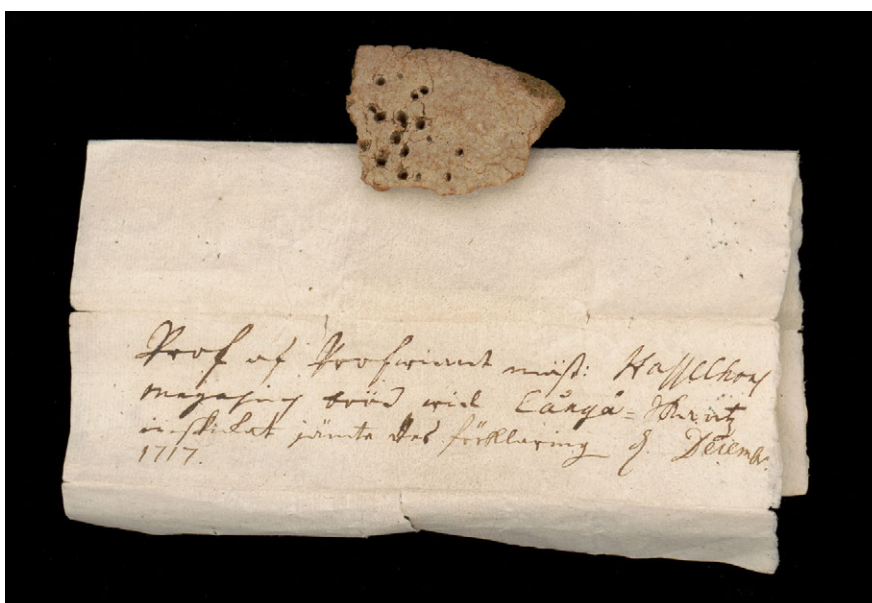 Prof af Profwiant mäst: Hasselhons
magasins bröd wid Långå=Skantz
inskickat jämte des förklaring d. Decembr.
1717.